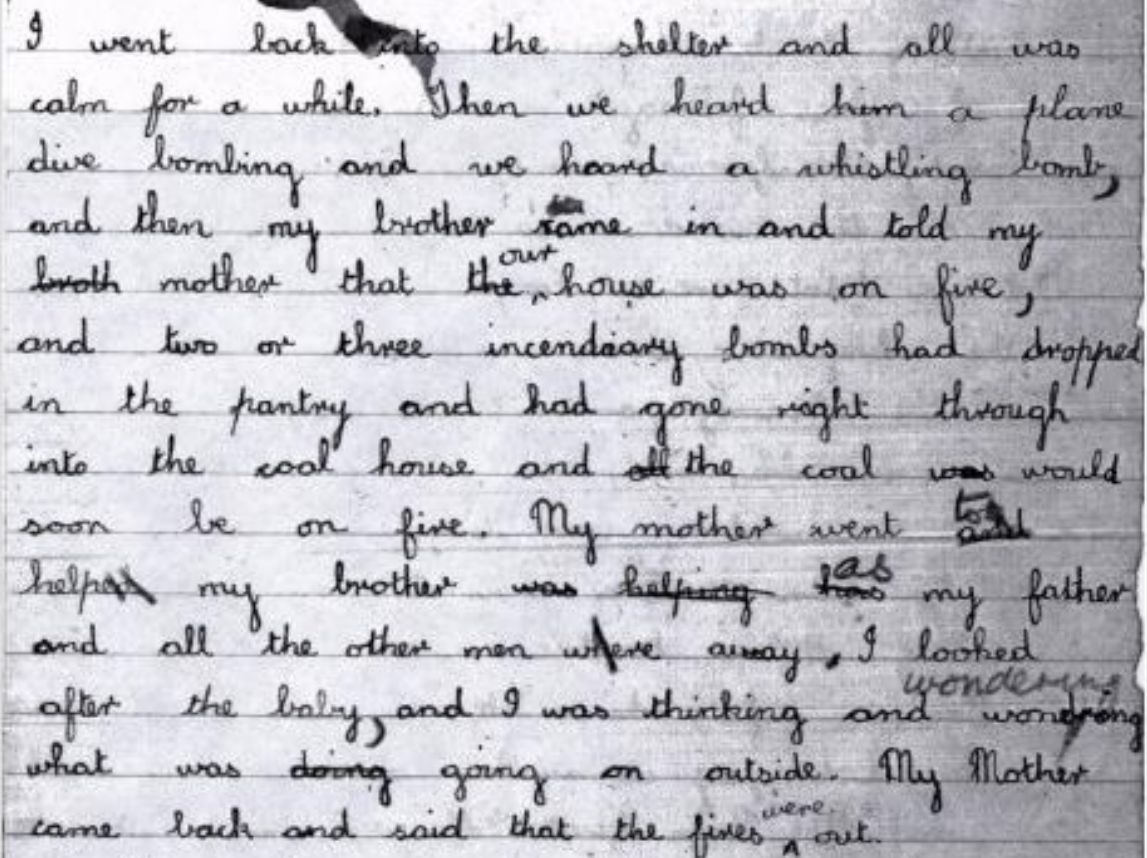 I went back into the shelter and all was
calm for a while. Then we heard him a plane
dive bombing and we heard a whistling bomb,
and then my brother came in and told my
broth mother that the our house was on fire,
and two or three incendiary bombs had dropped
in the pantry and had gone right through
into the coal house and all the coal was would
soon be on fire. My mother went and to
helped my brother was helping has as my father
and all the other men where away, I looked
after the baby, and I was thinking and wondring wondering
what was doing going on outside. My Mother
came back and said that the fires were out.